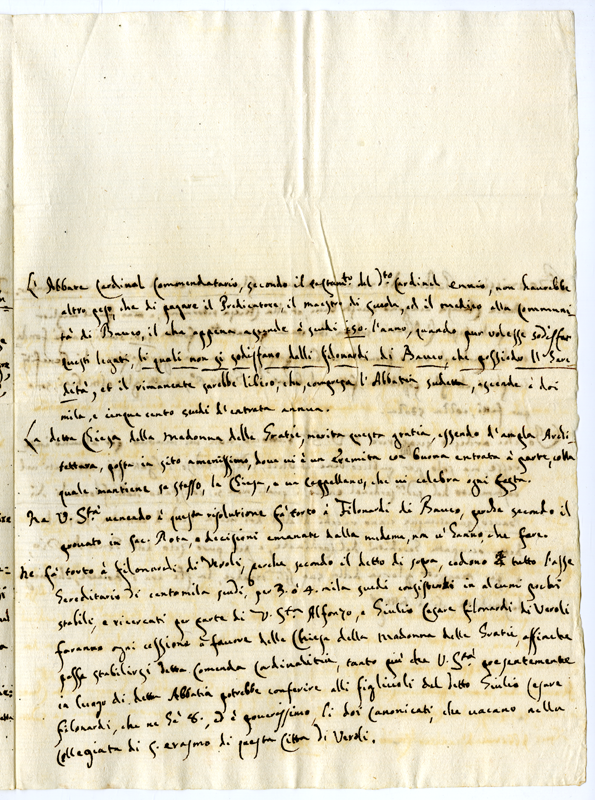 L'Abbate Cardinal Commendatario, secondo il testamto del Dto Cardinal Ennio, non haverebbe
altro peso, che di pagare il Predicatore, il maestro di scuola, ed il medico alla Communi
tà di Bauco, il che appena ascende à scudi 150. l'anno, quando pur volesse sodisfar
questi legati, li quali non si sodisfano dalli filonardi di Bauco, che possiedno l'Here
dità, et il rimanente sarebbe libero, che, congrega l'Abbatia sudetta, ascende à doi
mila, e cinque cento scudi d'entrata annua.
La detta Chiesa della Madonna delle Gratie, merita questa gratia, essendo d'ampla Archi
tettura, posta in sito amenissimo, dove vi è un Eremita con buona entrata à parte, colla
quale mantiene se stesso, la Chiesa, e un Cappellano, che vi celebra ogni festa.
Ne V. Stà venendo à questa risolutione fà torto à Filonardi di Bauco, perche secondo il
provato in Sac. Rota, e decisioni emanate dalla medema, non v'hanno, che fare.
Ne fà torto à filonardi di Veroli, perche secondo il detto di sopra, cedono tutto l'asse
Hereditario di centomila scudi, per 3. ò 4. mila scudi consistenti in alcuni pochi
stabili, e ricercati per parte di V. Stà Alfonzo, e Giulio Cesare filonardi di Veroli
faranno ogni cessione à favore della Chiesa della Madonna delle Gratie, affinche
possa stabilirsi detta Comenda Cardinalitia, tanto più che V. Stà presentemente
in luogo di detta Abbatia potrebbe conferire alli figlioli del detto Giulio Cesare
filonardi, che ne hà 8., ed è poverissimo, li doi canonicati, che vacano nella
Collegiata di S. Erasmo di questa Città di Veroli.